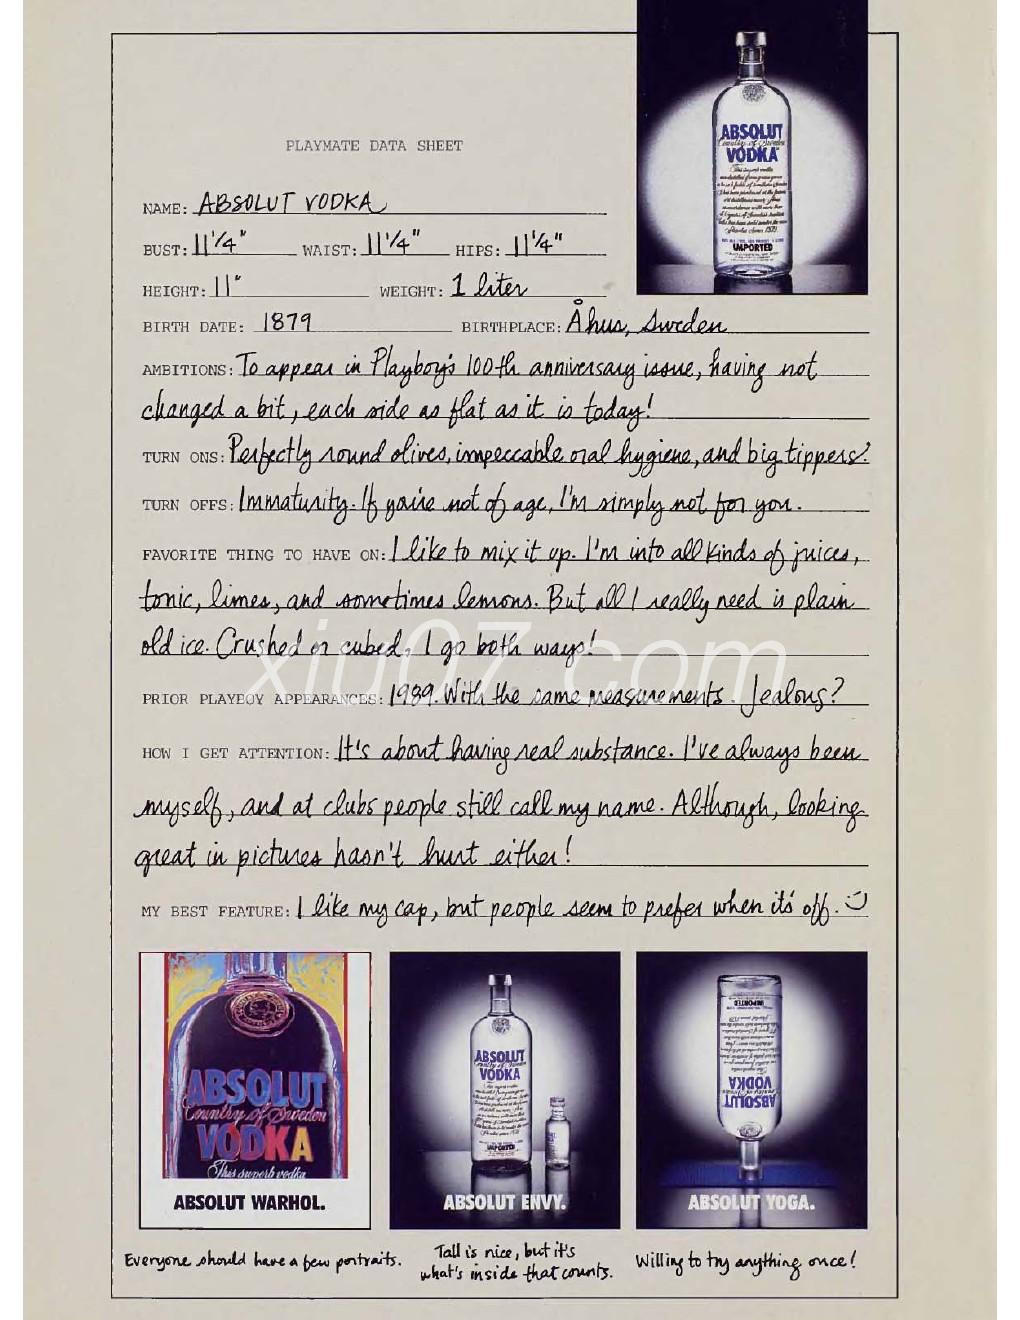 PLAYMATE DATA SHEET
NAME: ABSOLUT VODKA
BUST: 11 1/4" WAIST: 11 1/4" HIPS: 11 1/4"
HEIGHT: 11" WEIGHT: 1 liter
BIRTH DATE: 1879 BIRTHPLACE: Åhus, Sweden
AMBITIONS: To appear in Playboy's 100th anniversary issue, having not
changed a bit, each side as flat as it is today!
TURN ONS: Perfectly round olives, impeccable oral hygiene, and big tippers!
TURN OFFS: Immaturity. If you're not of age, I'm simply not for you.
FAVORITE THING TO HAVE ON: I like to mix it up. I'm into all kinds of juices,
tonic, limes, and sometimes lemons. But all I really need is plain
old ice. Crushed or cubed, I go both ways!
xiu07.com
PRIOR PLAYBOY APPEARANCES: 1989. With the same measurements. Jealous?
HOW I GET ATTENTION: It's about having real substance. I've always been
myself, and at clubs people still call my name. Although, looking
great in pictures hasn't hurt either!
MY BEST FEATURE: I like my cap, but people seem to prefer when it's off.
ABSOLUT
Country of Sweden
VODKA
This superb vodka
IMPORTED
ABSOLUT
Country of Sweden
VODKA
This superb vodka
ABSOLUT WARHOL.
Everyone should have a few portraits.
ABSOLUT
Country of Sweden
VODKA
IMPORTED
ABSOLUT ENVY.
Tall is nice, but it's
what's inside that counts.
ABSOLUT
Country of Sweden
VODKA
IMPORTED
ABSOLUT YOGA.
Willing to try anything once!